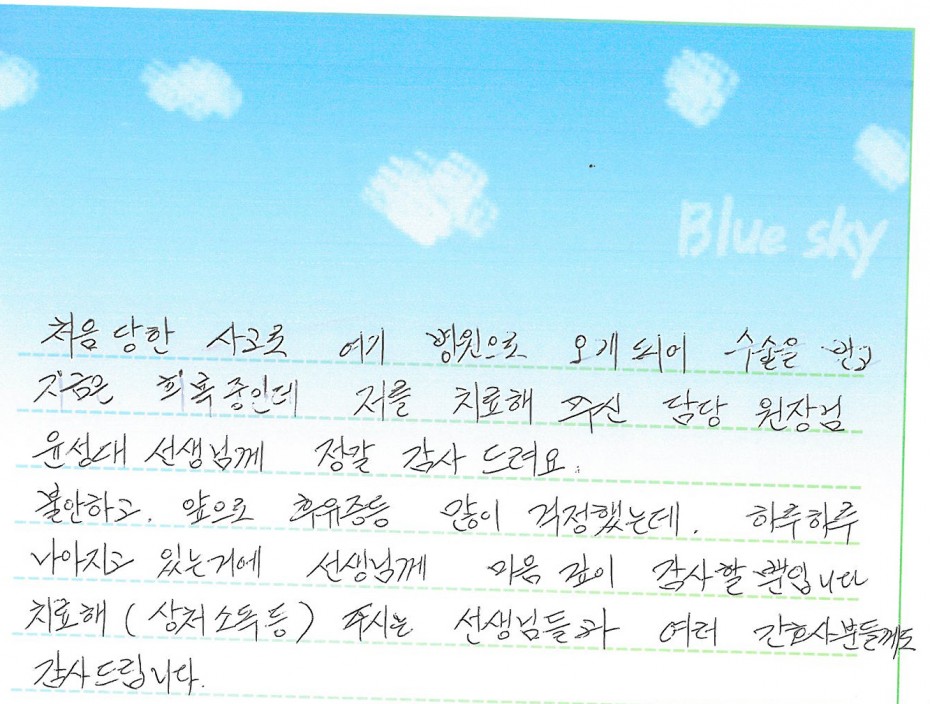 Blue sky
처음 당한 사고로 여기 병원으로 오게 되어 수술을 받고
지금은 회복중인데 저를 치료해 주신 담당 원장님
윤성대 선생님께 정말 감사 드려요.
불안하고. 앞으로 후유증등 많이 걱정했는데. 하루하루
나아지고 있는거에 선생님께 마음 깊이 감사할 뿐입니다
치료해 (상처소독등) 주시는 선생님들과 여러 간호사분들께도
감사드립니다.